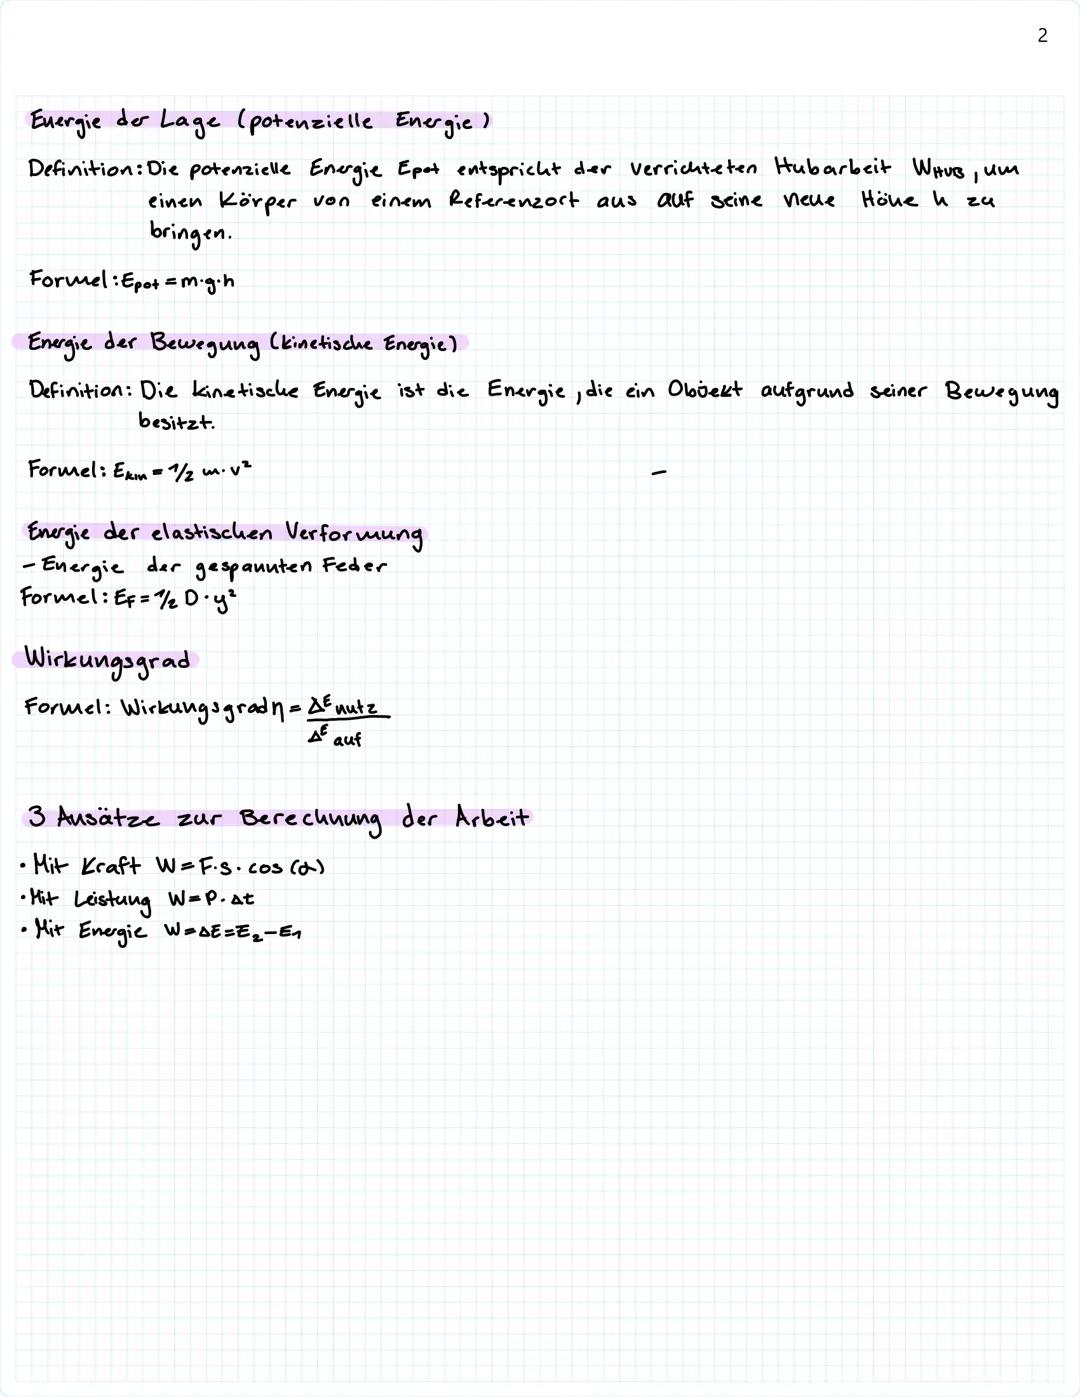 2
Energie der Lage (potenzielle Energie)
Definition: Die potenzielle Energie Epot entspricht der verrichteten Hubarbeit WHUB, um
einen Körper von einem Referenzort aus auf seine neue Höhe h zu
bringen.
Formel: Epot = m·g·h
Energie der Bewegung (kinetische Energie)
Definition: Die kinetische Energie ist die Energie, die ein Objekt aufgrund seiner Bewegung
besitzt.
Formel: Ekin = 1/2 m·v²
Energie der elastischen Verformung
- Energie der gespannten Feder
Formel: EF = 1/2 D·y²
Wirkungsgrad
Formel: Wirkungsgrad η = ΔE nutz
ΔE auf
3 Ansätze zur Berechnung der Arbeit
• Mit Kraft W = F·s·cos(α)
• Mit Leistung W = P·Δt
• Mit Energie W = ΔE = E₂ - E₁